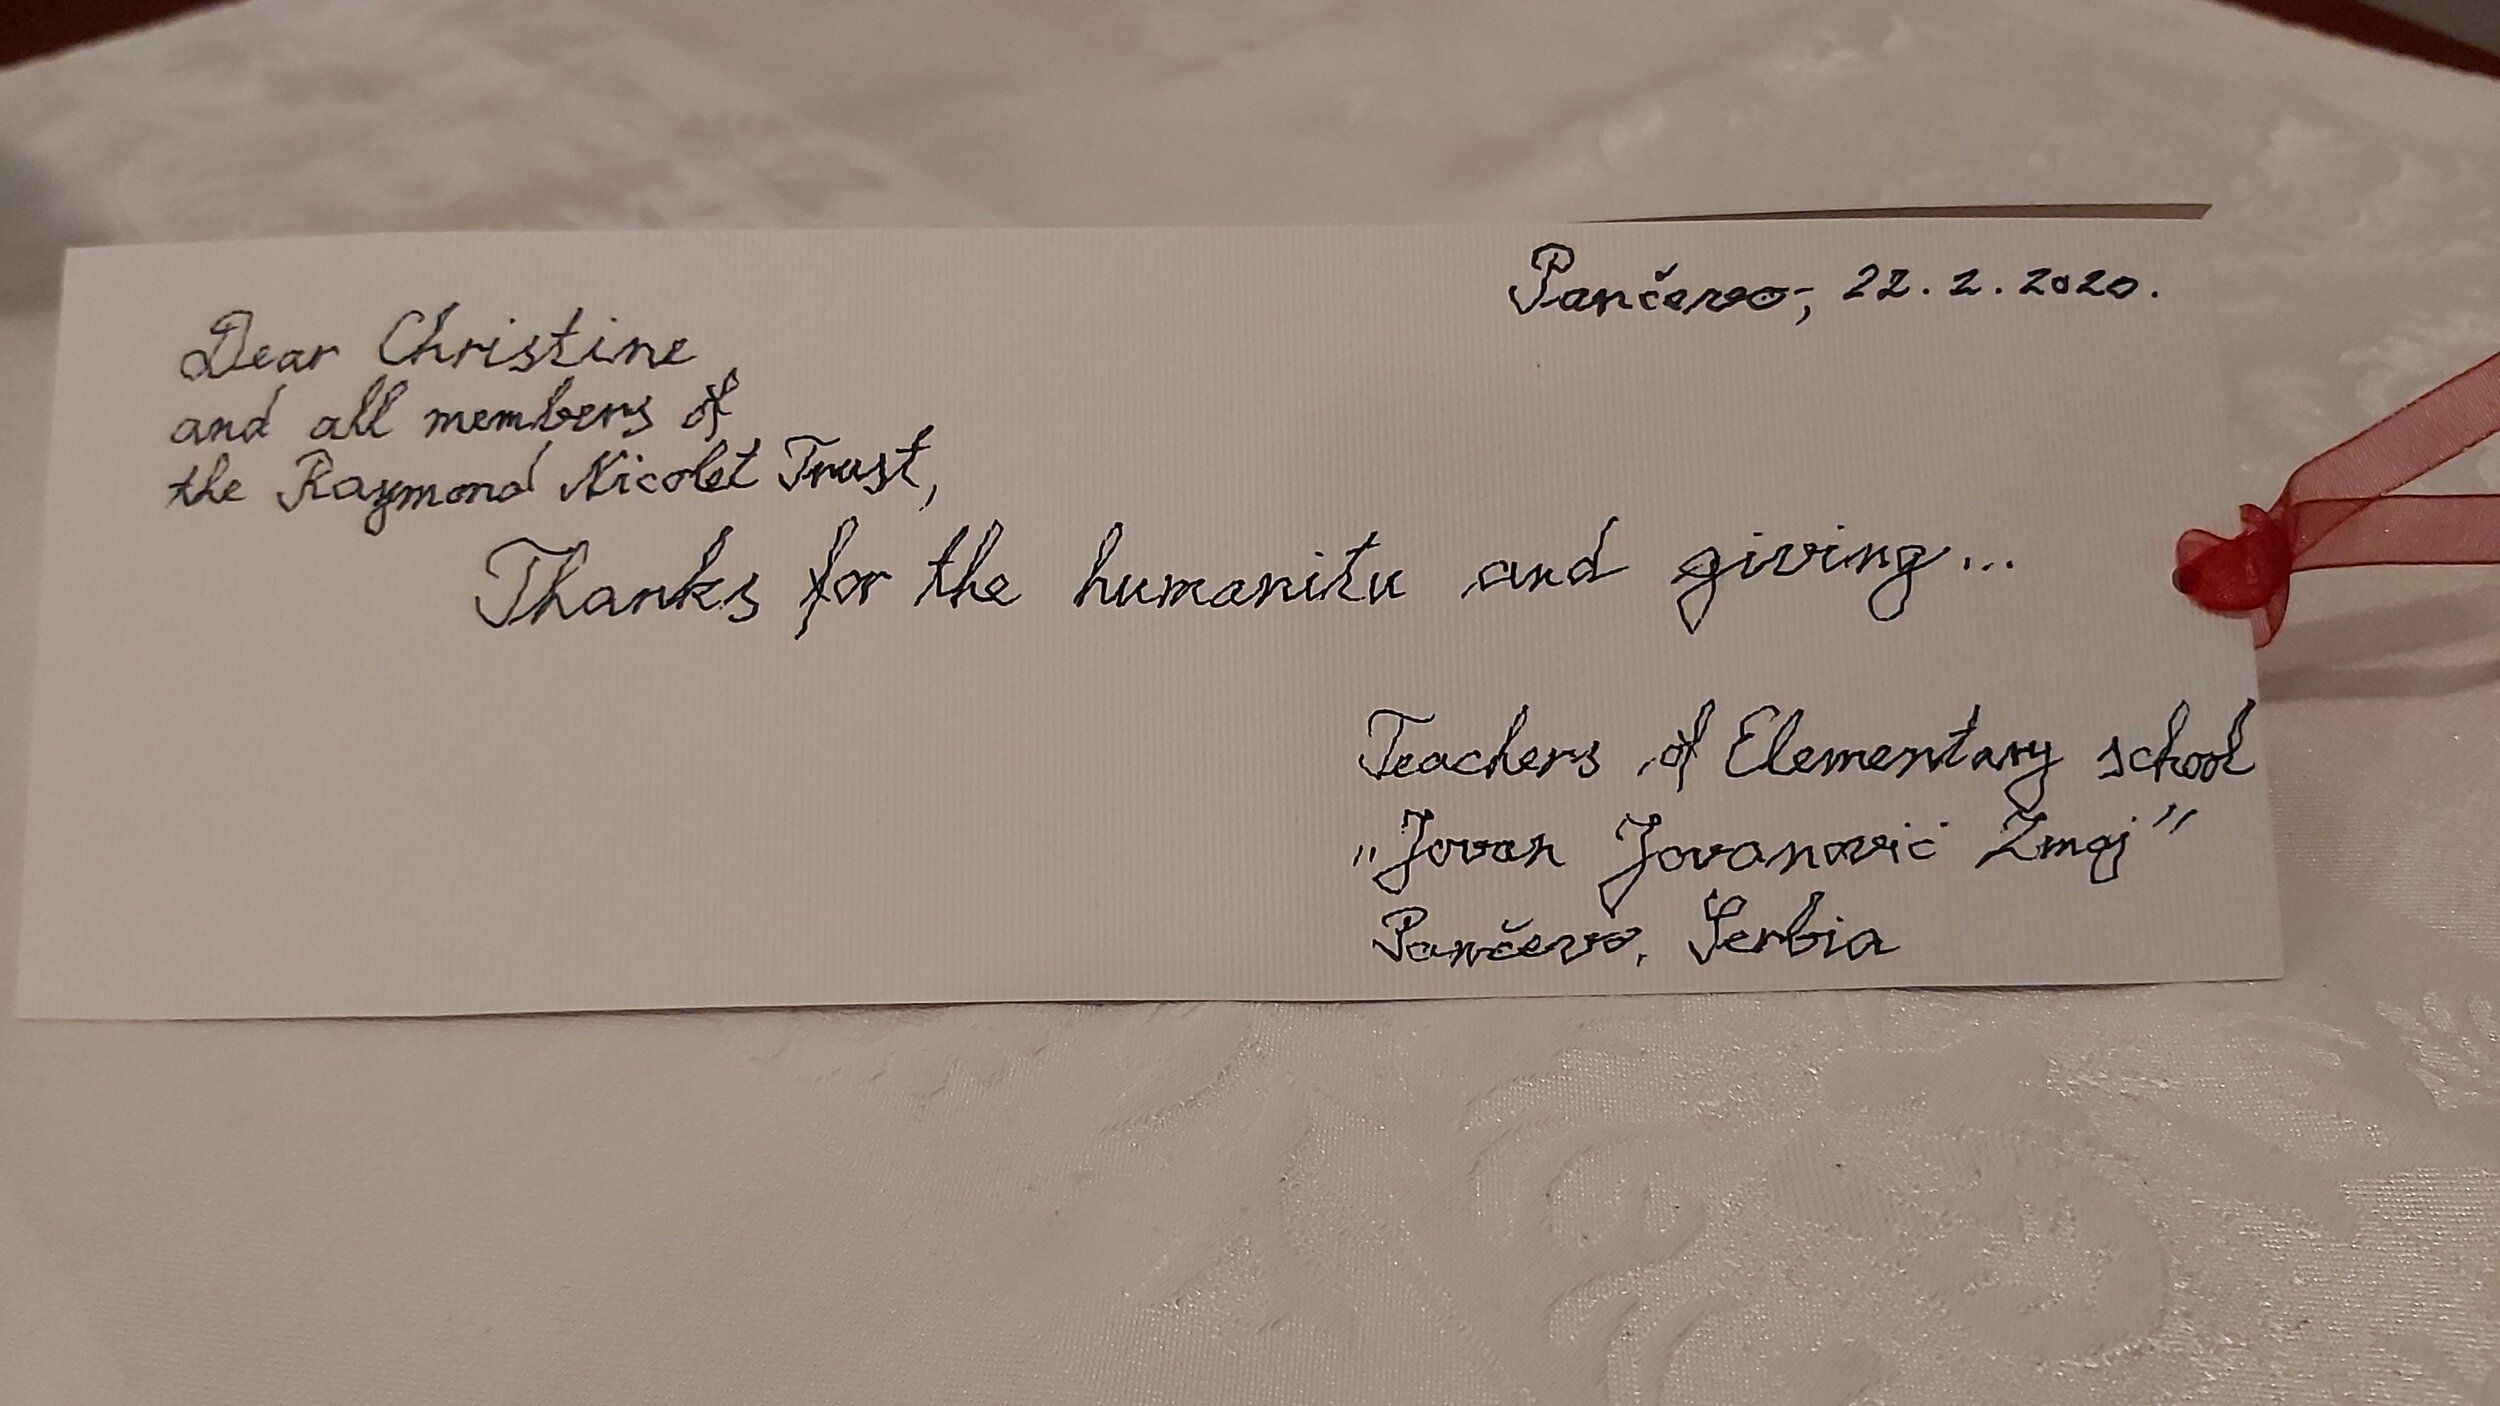 Pančevo, 22.2.2020.
Dear Christine
and all members of
the Raymond Nicolet Trust,
Thanks for the humanitu and giving...
Teachers of Elementary school
„Jovan Jovanović Zmaj"
Pančevo, Serbia